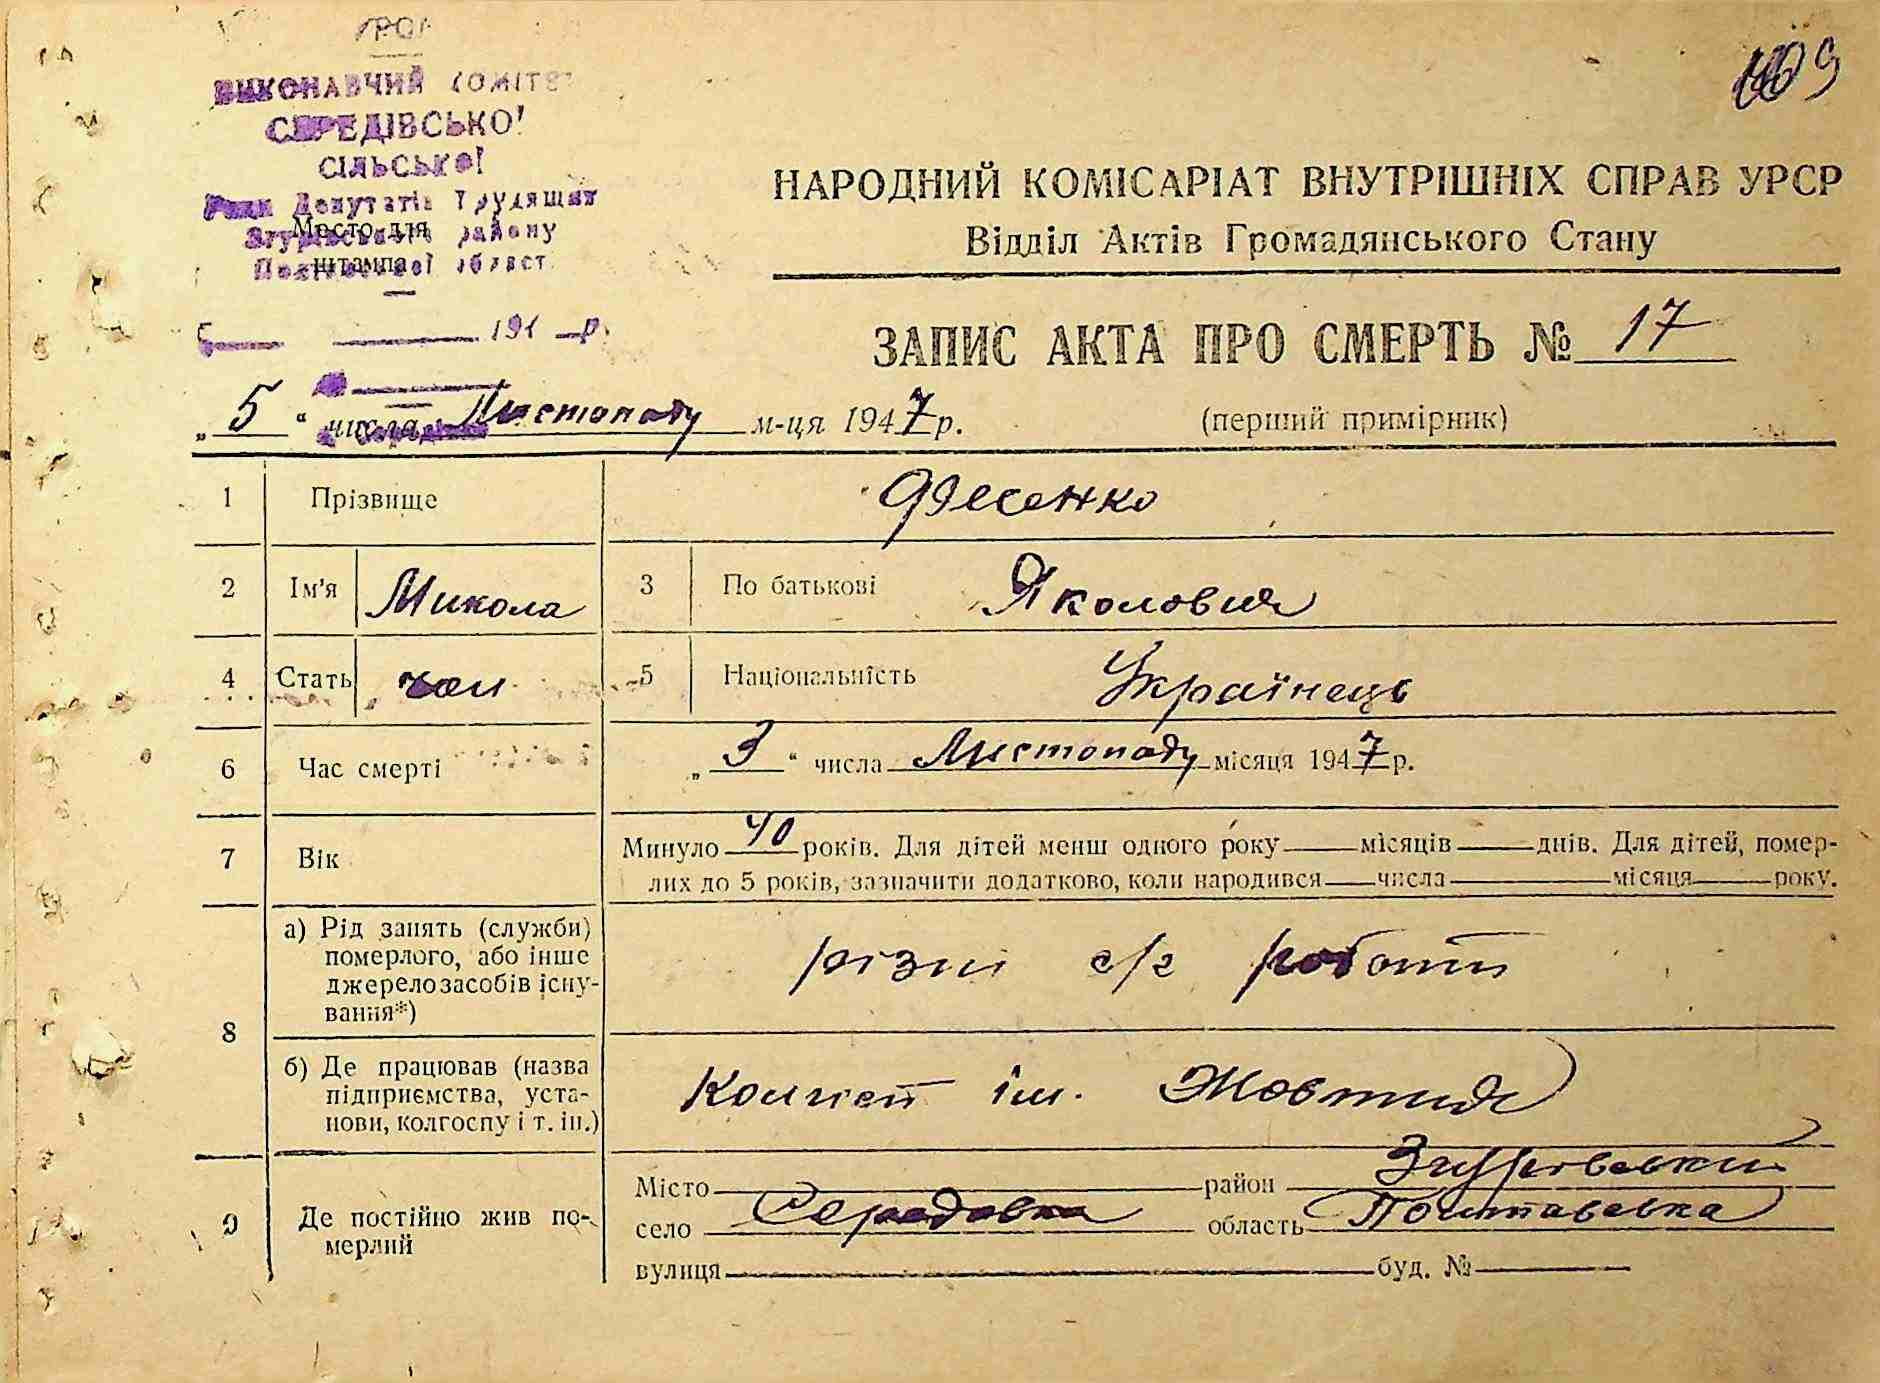 УРСР
ВИКОНАВЧИЙ КОМІТЕТ
СЕРЕДІВСЬКОЇ
СІЛЬСЬКОЇ
Ради Депутатів Трудящих
Згурівського району
Полтавської област.
Место для
штампа
194 р.
109
НАРОДНИЙ КОМІСАРІАТ ВНУТРІШНІХ СПРАВ УРСР
Відділ Актів Громадянського Стану
ЗАПИС АКТА ПРО СМЕРТЬ № 17
„ 5 “ числа Листопаду м-ця 1947 р. (перший примірник)
1 Прізвище Фесенко
2 Ім'я Микола 3 По батькові Якович
4 Стать чол 5 Національність Українець
6 Час смерті „ 3 “ числа Листопаду місяця 1947 р.
7 Вік Минуло 40 років. Для дітей менш одного року місяців днів. Для дітей, помер-
лих до 5 років, зазначити додатково, коли народився числа місяця року.
8 а) Рід занять (служби) померлого, або інше джерело засобів існу-вання*) різні с/г роботи
б) Де працював (назва підприємства, уста-нови, колгоспу і т. ін.) Колгосп ім. Жовтня
9 Де постійно жив по-мерлий Місто район Згурівський
село Середовка область Полтавська
вулиця буд. №